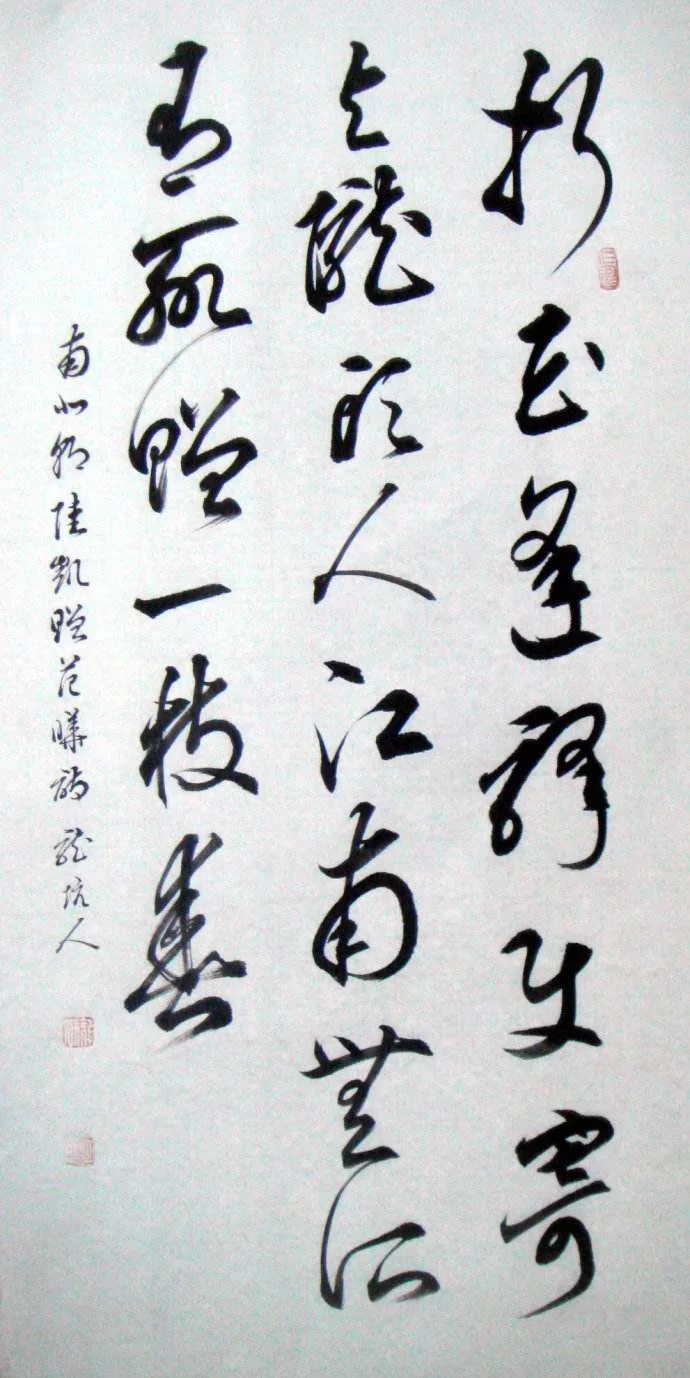 折花逢驛使寄
与隴頭人江南無所
有聊贈一枝春
南北朝陸凱贈范曄詩 龍坑人